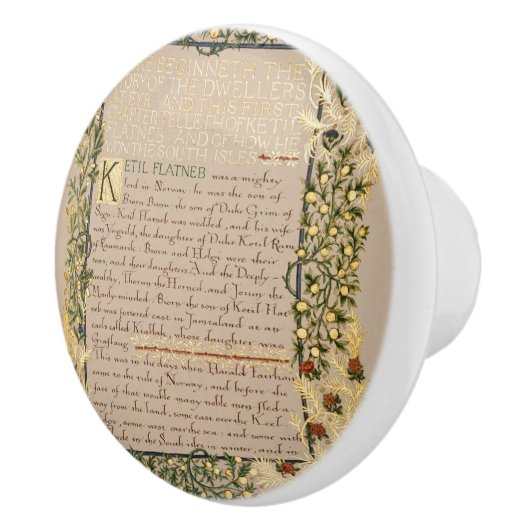 BEGINNETH THE
STORY OF THE DWELLERS
AT EYR, AND THIS FIRST
CHAPTER TELLETH OF KETIL
FLATNEB, AND OF HOW HE
WON THE SOUTH ISLES
KETIL FLATNEB was a mighty
lord in Norway: he was the son of
Biorn Buna, the son of Duke Grim of
Sogn. Ketil Flatneb was wedded, and his wife
was Yngvild, the daughter of Duke Ketil Ram
of Raumarik: Biorn and Helgi were their
sons, and their daughters Aud the Deeply-
wealthy, Thorun the Horned, and Jorun the
Manly-minded. Biorn the son of Ketil Flat
neb was fostered east in Jamtaland at an
earls called Kiallak, whose daughter was
Giaflaug
This was in the days when Harald Fairhair
came to the rule of Norway; and before the
face of that trouble many noble men fled a-
way from the land, some east over the Keel-
some west over the sea: and some with
in the South isles in winter, and in